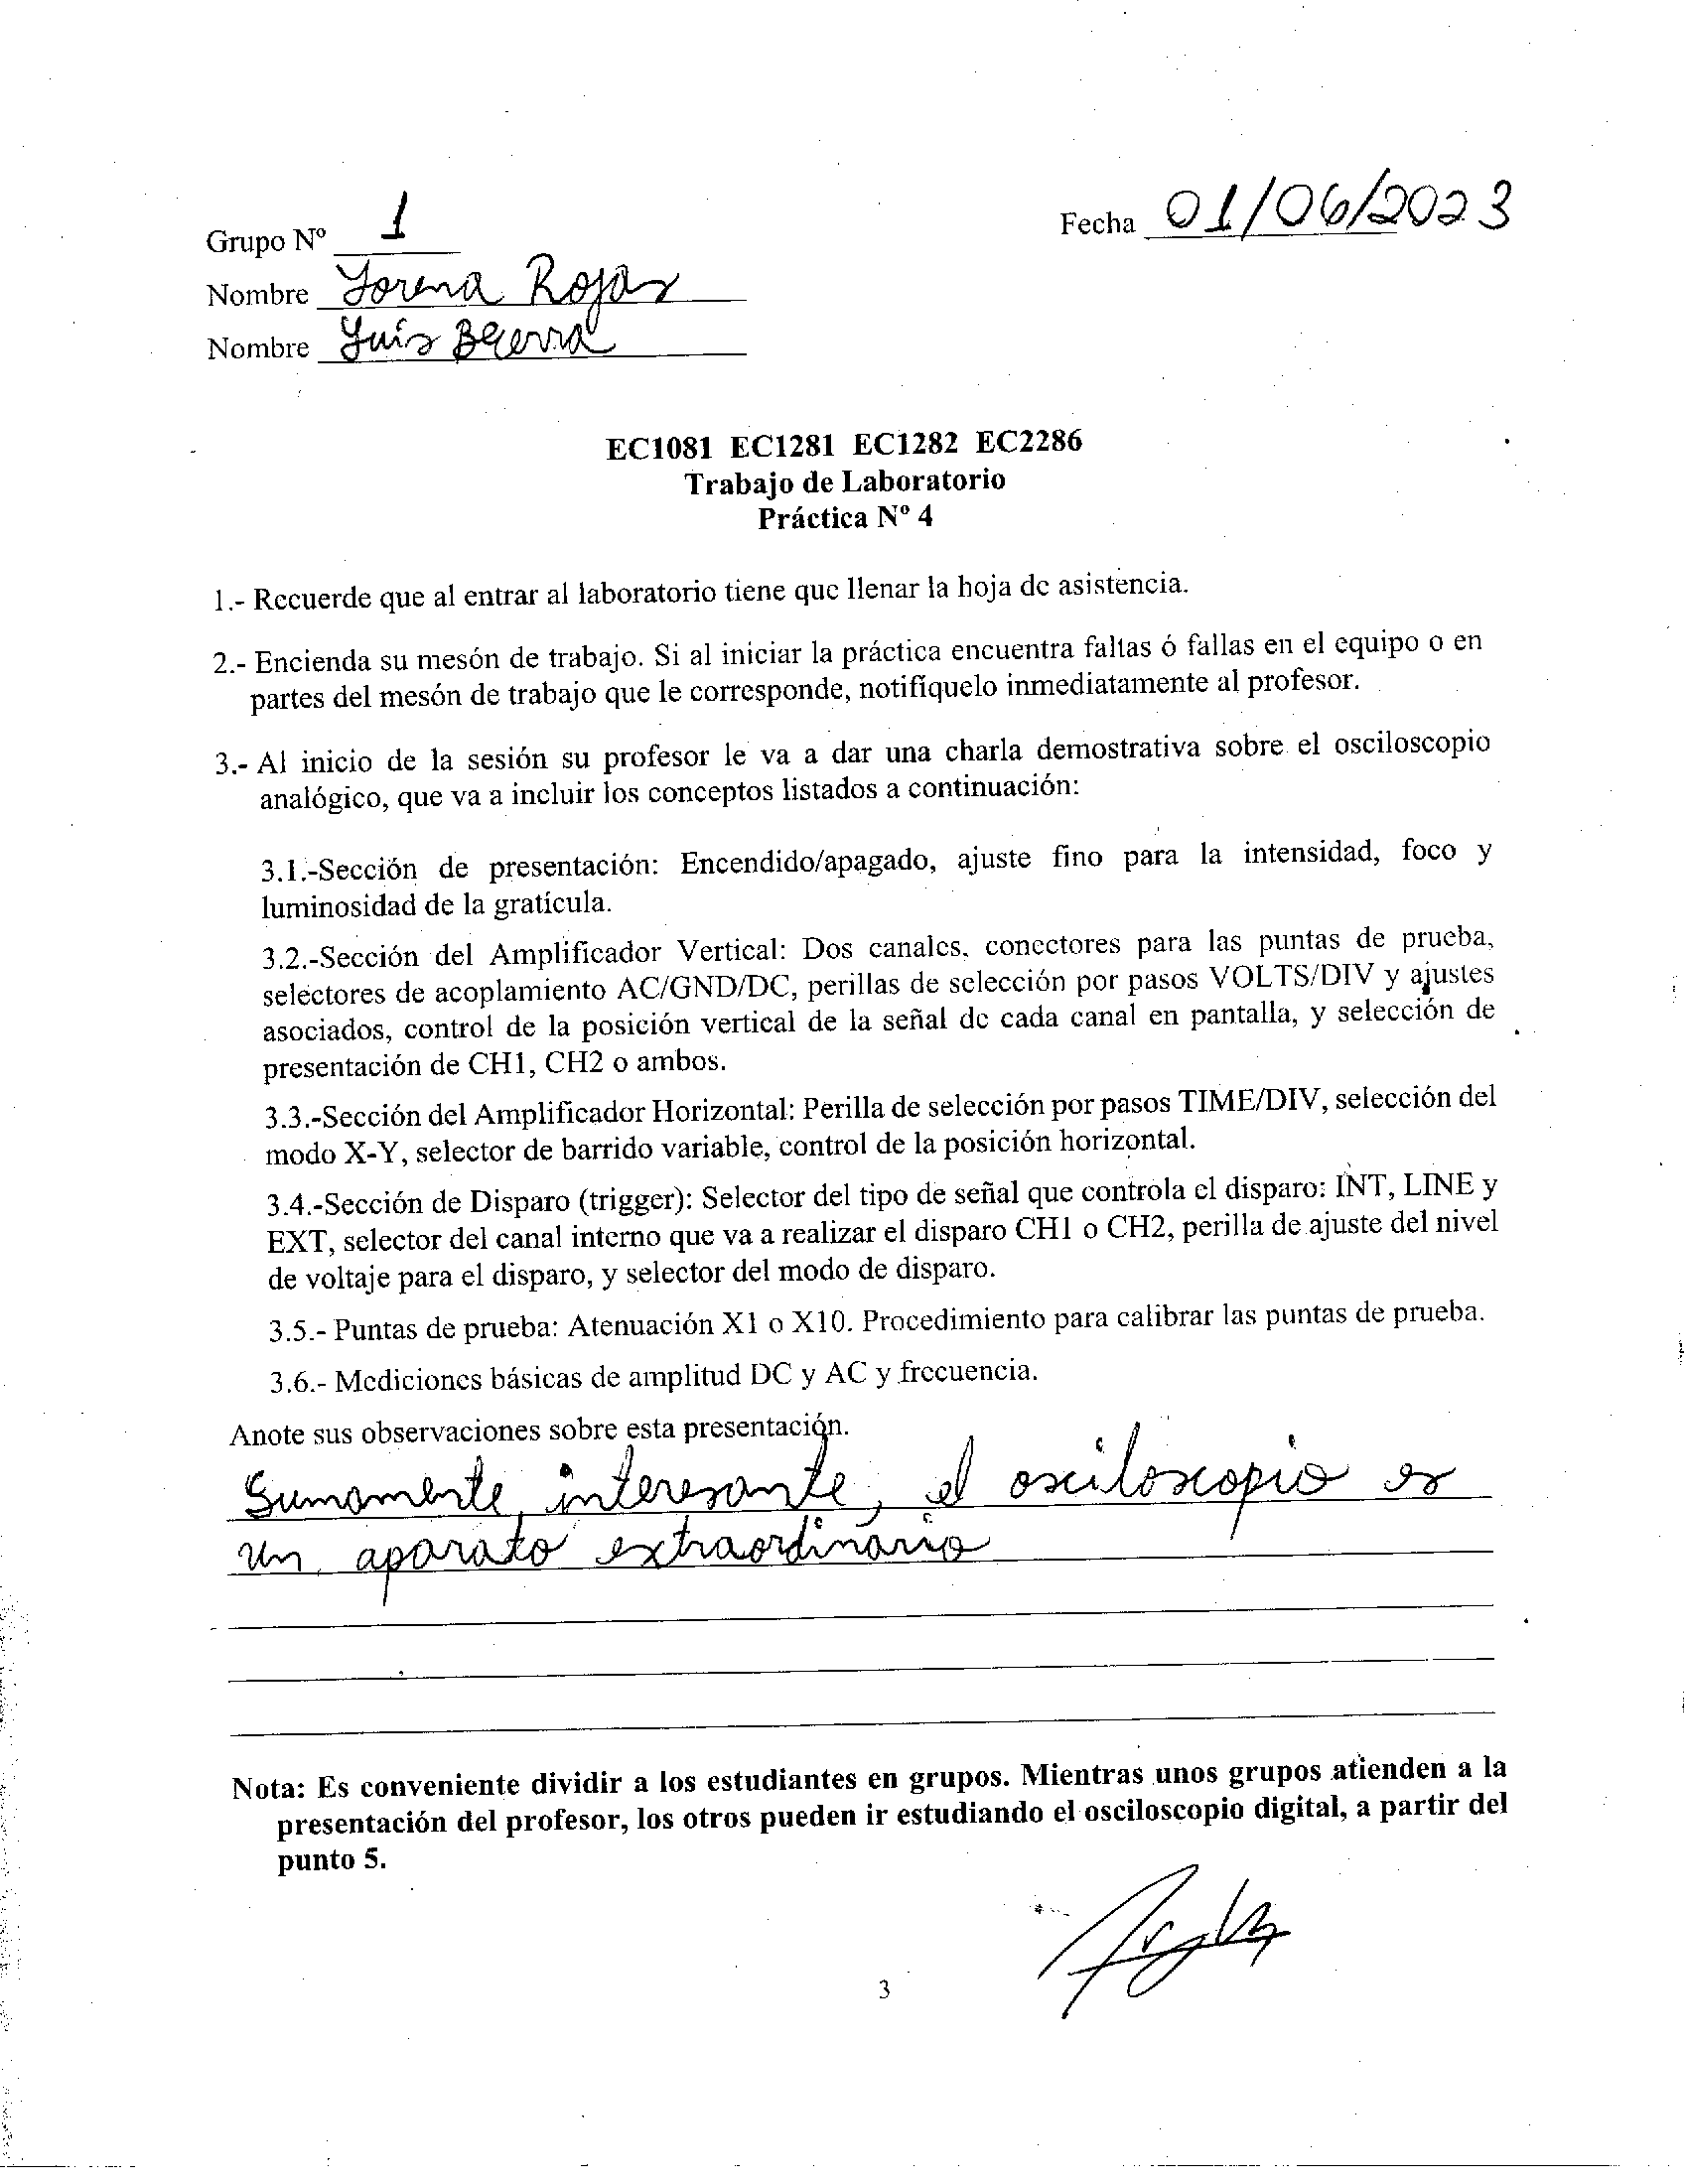 Grupo Nº 1
Fecha 01/06/2023
Nombre Lorena Rojas
Nombre Luis Becerra
EC1081 EC1281 EC1282 EC2286
Trabajo de Laboratorio
Práctica Nº 4
1.- Recuerde que al entrar al laboratorio tiene que llenar la hoja de asistencia.
2.- Encienda su mesón de trabajo. Si al iniciar la práctica encuentra faltas ó fallas en el equipo o en
partes del mesón de trabajo que le corresponde, notifíquelo inmediatamente al profesor.
3.- Al inicio de la sesión su profesor le va a dar una charla demostrativa sobre el osciloscopio
analógico, que va a incluir los conceptos listados a continuación:
3.1.-Sección de presentación: Encendido/apagado, ajuste fino para la intensidad, foco y
luminosidad de la gratícula.
3.2.-Sección del Amplificador Vertical: Dos canales, conectores para las puntas de prueba,
selectores de acoplamiento AC/GND/DC, perillas de selección por pasos VOLTS/DIV y ajustes
asociados, control de la posición vertical de la señal de cada canal en pantalla, y selección de
presentación de CH1, CH2 o ambos.
3.3.-Sección del Amplificador Horizontal: Perilla de selección por pasos TIME/DIV, selección del
modo X-Y, selector de barrido variable, control de la posición horizontal.
3.4.-Sección de Disparo (trigger): Selector del tipo de señal que controla el disparo: INT, LINE y
EXT, selector del canal interno que va a realizar el disparo CH1 o CH2, perilla de ajuste del nivel
de voltaje para el disparo, y selector del modo de disparo.
3.5.- Puntas de prueba: Atenuación X1 o X10. Procedimiento para calibrar las puntas de prueba.
3.6.- Mediciones básicas de amplitud DC y AC y frecuencia.
Anote sus observaciones sobre esta presentación.
Sumamente interesante, el osciloscopio es
un aparato extraordinario
Nota: Es conveniente dividir a los estudiantes en grupos. Mientras unos grupos atienden a la
presentación del profesor, los otros pueden ir estudiando el osciloscopio digital, a partir del
punto 5.
3